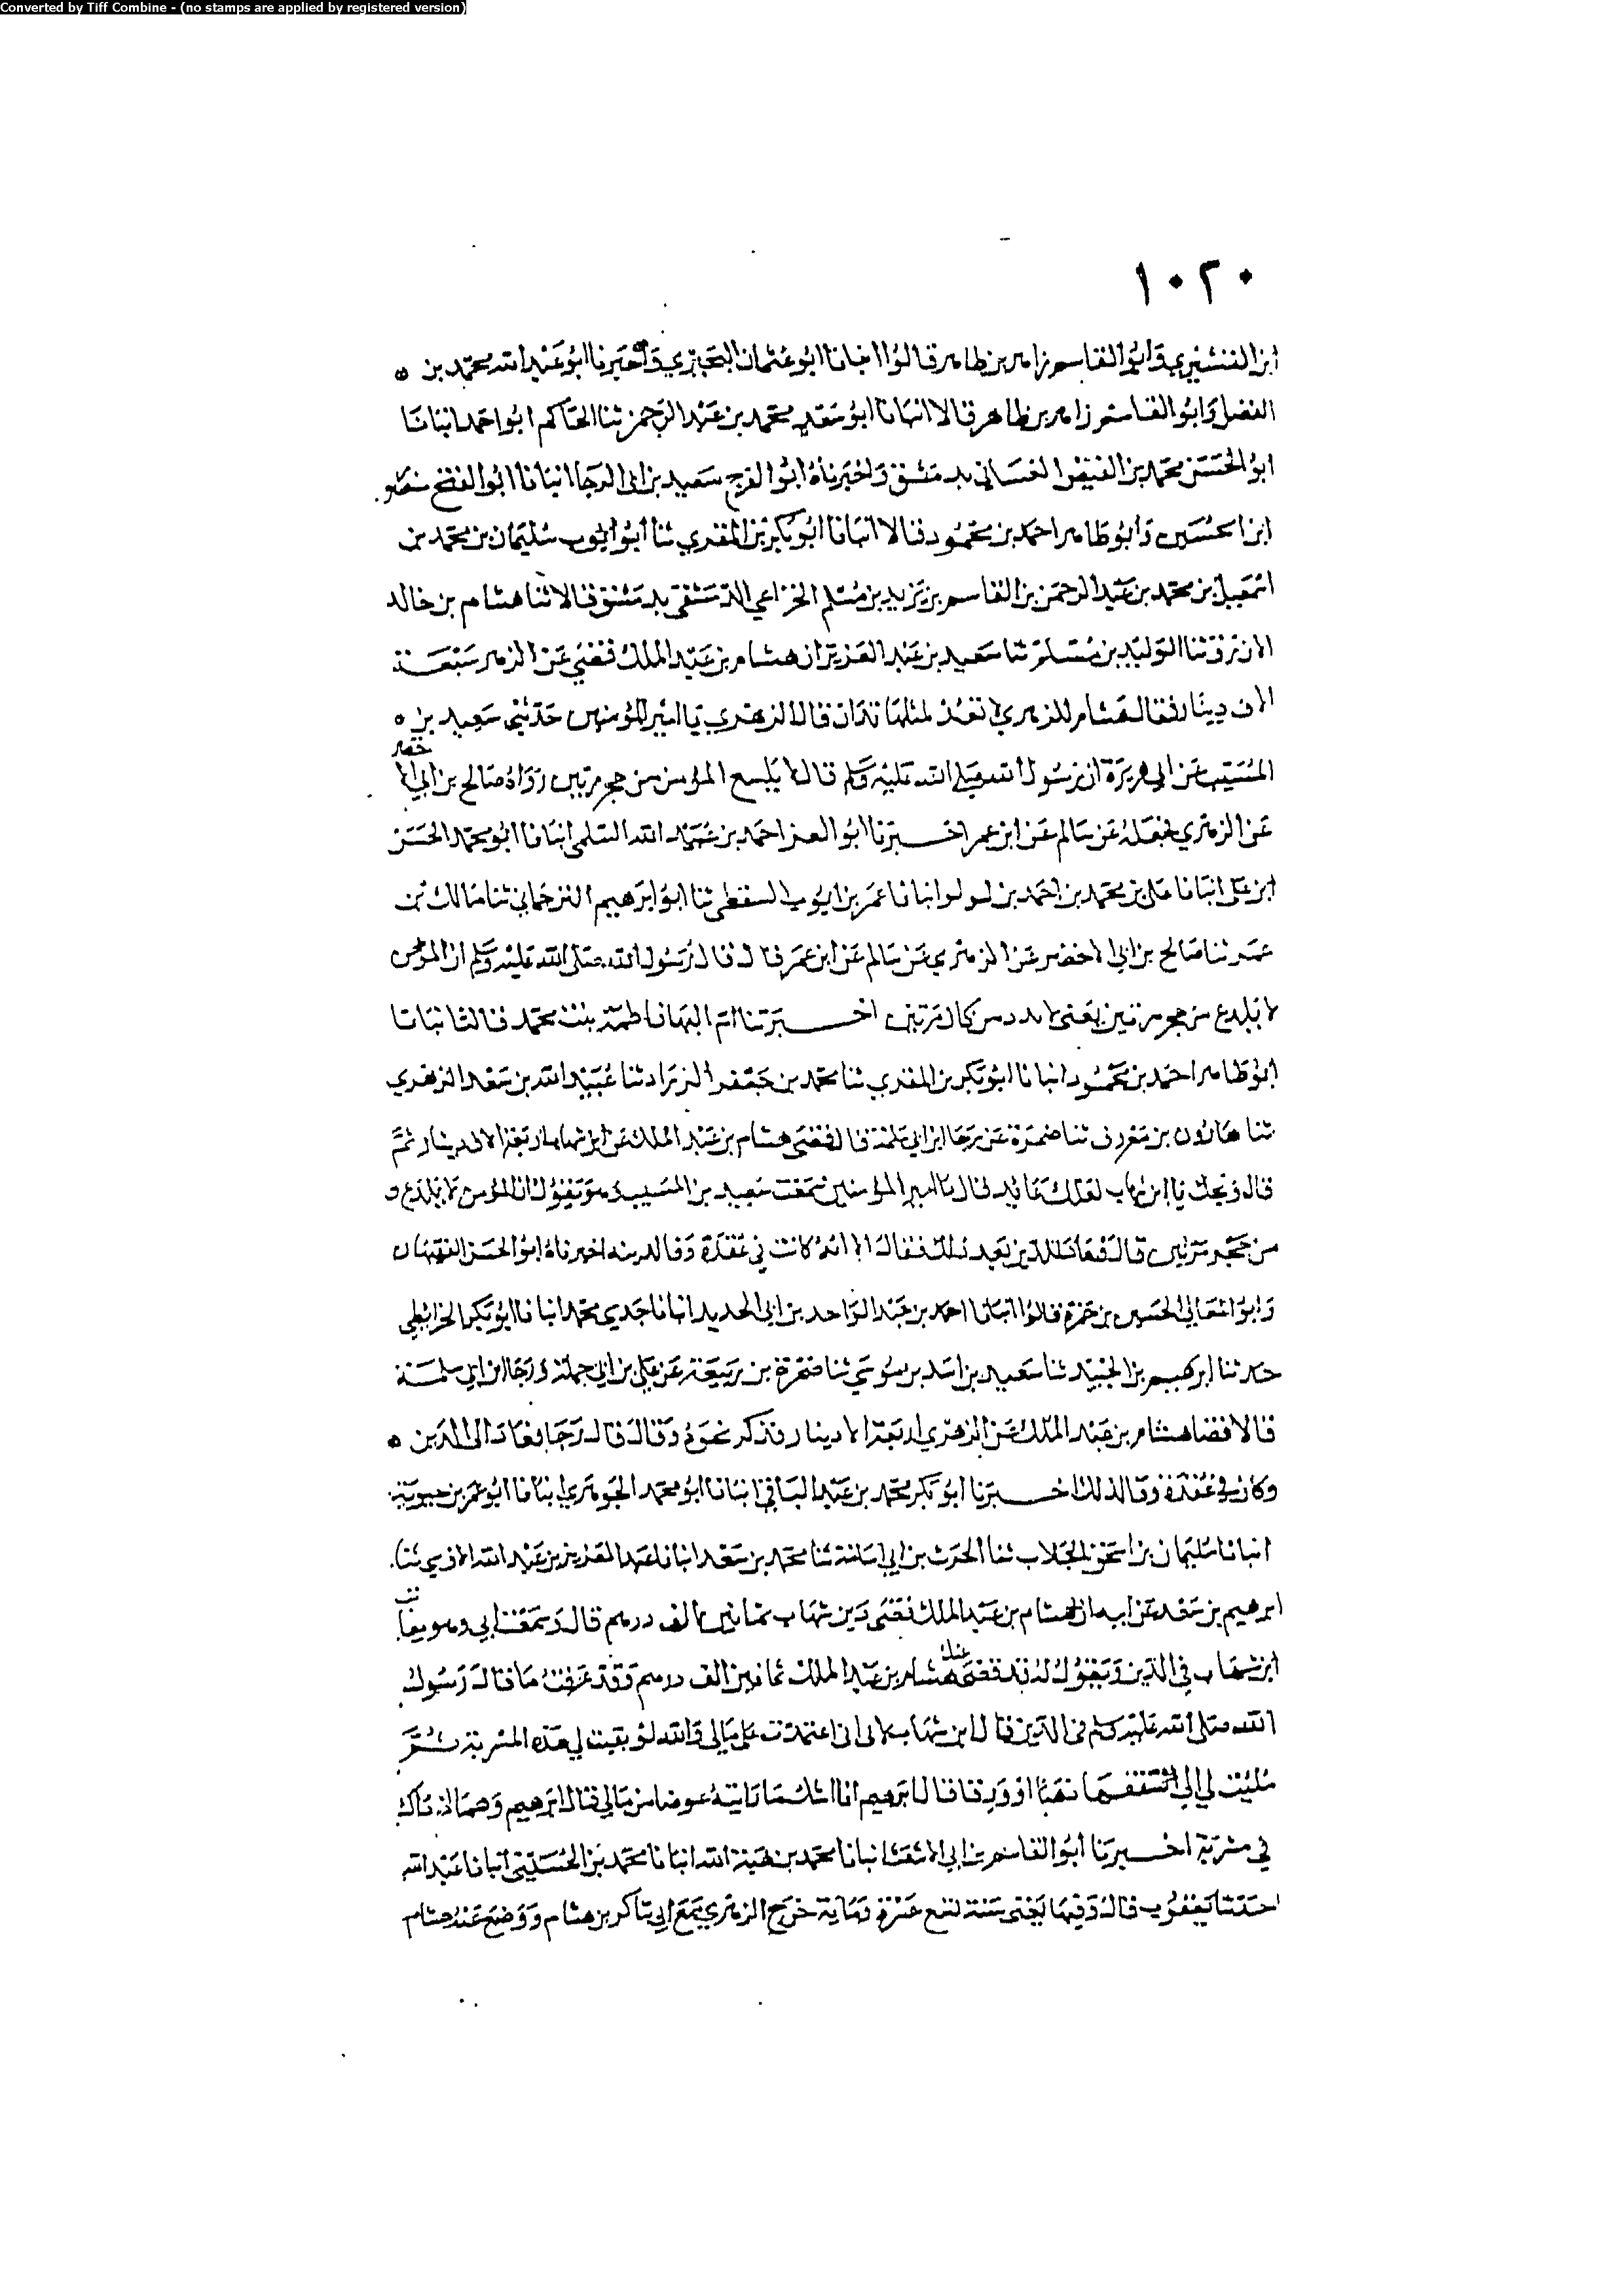 Converted by Tiff Combine - (no stamps are applied by registered version)
١٠٢٠
ابن القشيري وابو القاسم زاهر بن طاهر قالوا انبانا ابو عثمان البحيري واخبرنا ابو عبد الله محمد بن
الفضل وابو القاسم زاهر بن طاهر قالا انبانا ابو سعد محمد بن عبد الرحمن ثنا الحاكم ابو احمد انبانا
ابو الحسن محمد بن الفيض الغساني بدمشق واخبرناه ابو الفرج سعيد بن ابي الرجا انبانا ابو الفتح منصور
ابن الحسين وابو طاهر احمد بن محمود قالا انبانا ابو بكر بن المقري ثنا ابو ايوب سليمان بن محمد بن
اسمعيل بن محمد بن عبد الرحمن بن القاسم بن يزيد بن مسلم الخزاعي الدمشقي بدمشق قالا ثنا هشام بن خالد
الازرق ثنا الوليد بن مسلم ثنا سعيد بن عبد العزيز ان هشام بن عبد الملك قضي عن الزهري سبعة
الاف دينار فقال هشام للزهري لا تعد لمثلها تدان قال الزهري يا امير المؤمنين حدثني سعيد بن
المسيب عن ابي هريرة ان رسول الله صلى الله عليه وسلم قال لا يلسع المؤمن من جحر مرتين رواه صالح بن ابي الاخضر
عن الزهري فجعله عن سالم عن ابن عمر اخبرنا ابو العز احمد بن عبيد الله السلمي انبانا ابو محمد الحسن
ابن علي انبانا علي بن محمد بن احمد بن لولو انبانا عمر بن ايوب السقطي ثنا ابو ابرهيم الترجماني ثنا مالك بن
عمر ثنا صالح بن ابي الاخضر عن الزهري عن سالم عن ابن عمر قال قال رسول الله صلى الله عليه وسلم ان المؤمن
لا يلدغ من جحر مرتين يعني مرتين اخبرتنا ام البهانا فاطمة بنت محمد قالت انبانا
ابو طاهر احمد بن محمود انبانا ابو بكر بن المقري ثنا محمد بن جعفر الزراد ثنا عبيد الله بن سعد الزهري
ثنا هارون بن معروف ثنا ضمرة عن رجا ابن ابي سلمة قال قضى هشام بن عبد الملك عن ابن شهاب اربعة الاف دينار ثم
قال ويحك يا ابن شهاب لعلك عايد قال يا امير المؤمنين سمعت سعيد بن المسيب وهو يقول ان المؤمن لا يلدغ
من جحر مرتين قال فعاد للدين بعد ذلك فقال الا انه كانت في عقدة وفا لدينه اخبرناه ابو الحسن الفقيهان
وابو المعالي الحسين بن حمزة قالوا انبانا احمد بن عبد الواحد بن ابي الحديد انبانا جدي محمد انبانا ابو بكر الخرائطي
حدثنا ابرهيم بن الجنيد ثنا سعيد بن اسد بن موسى ثنا ضمرة بن ربيعة عن علي بن ابي جملة ورجا ابن ابي سلمة
قالا قضا هشام بن عبد الملك عن الزهري اربعة الاف دينار فذكر نحوه وقال قال رجا فعاد الى الدين
وكان في عقده وفا لذلك اخبرنا ابو بكر محمد بن عبد الباقي انبانا ابو محمد الجوهري انبانا ابو عمر بن حيوية
انبانا سليمان بن اسحق الجلاب ثنا الحرث بن ابي اسامة ثنا محمد بن سعد انبانا عبد العزيز بن عبد الله الاويسي ثنا
ابرهيم بن سعد عن ابيه ان هشام بن عبد الملك قضى دين شهاب ثمانين الف درهم قال وسمعت ابي وهو يعاتب
ابن شهاب في الدين ويقول له قد قضى عنك هشام بن عبد الملك ثمانين الف درهم وقد عرفت ما قال رسول
الله صلى الله عليه وسلم في الدين قال ابن شهاب لابي اني اعتمدت على مالي والله لو بقيت لي هذه المشربة ثم
مليت لي الى سقفها ذهبا او ورقا قال ابرهيم انا اشك ما رايته عوضا من مالي قال ابرهيم وهما اذ ذاك
في مشربة اخبرنا ابو القاسم بن ابي الاشعث انبانا محمد بن هبة الله انبانا محمد بن الحسين انبانا عبد الله
حدثنا يعقوب قال وفيها يعني سنة تسع عشرة وماية خرج الزهري مع ابي شاكر بن هشام ووضع عنه هشام